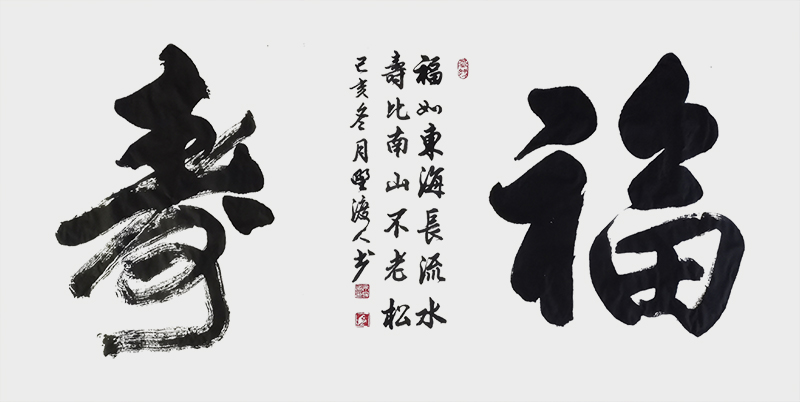 福
福如東海長流水
壽比南山不老松
己亥冬月野渡人书
寿